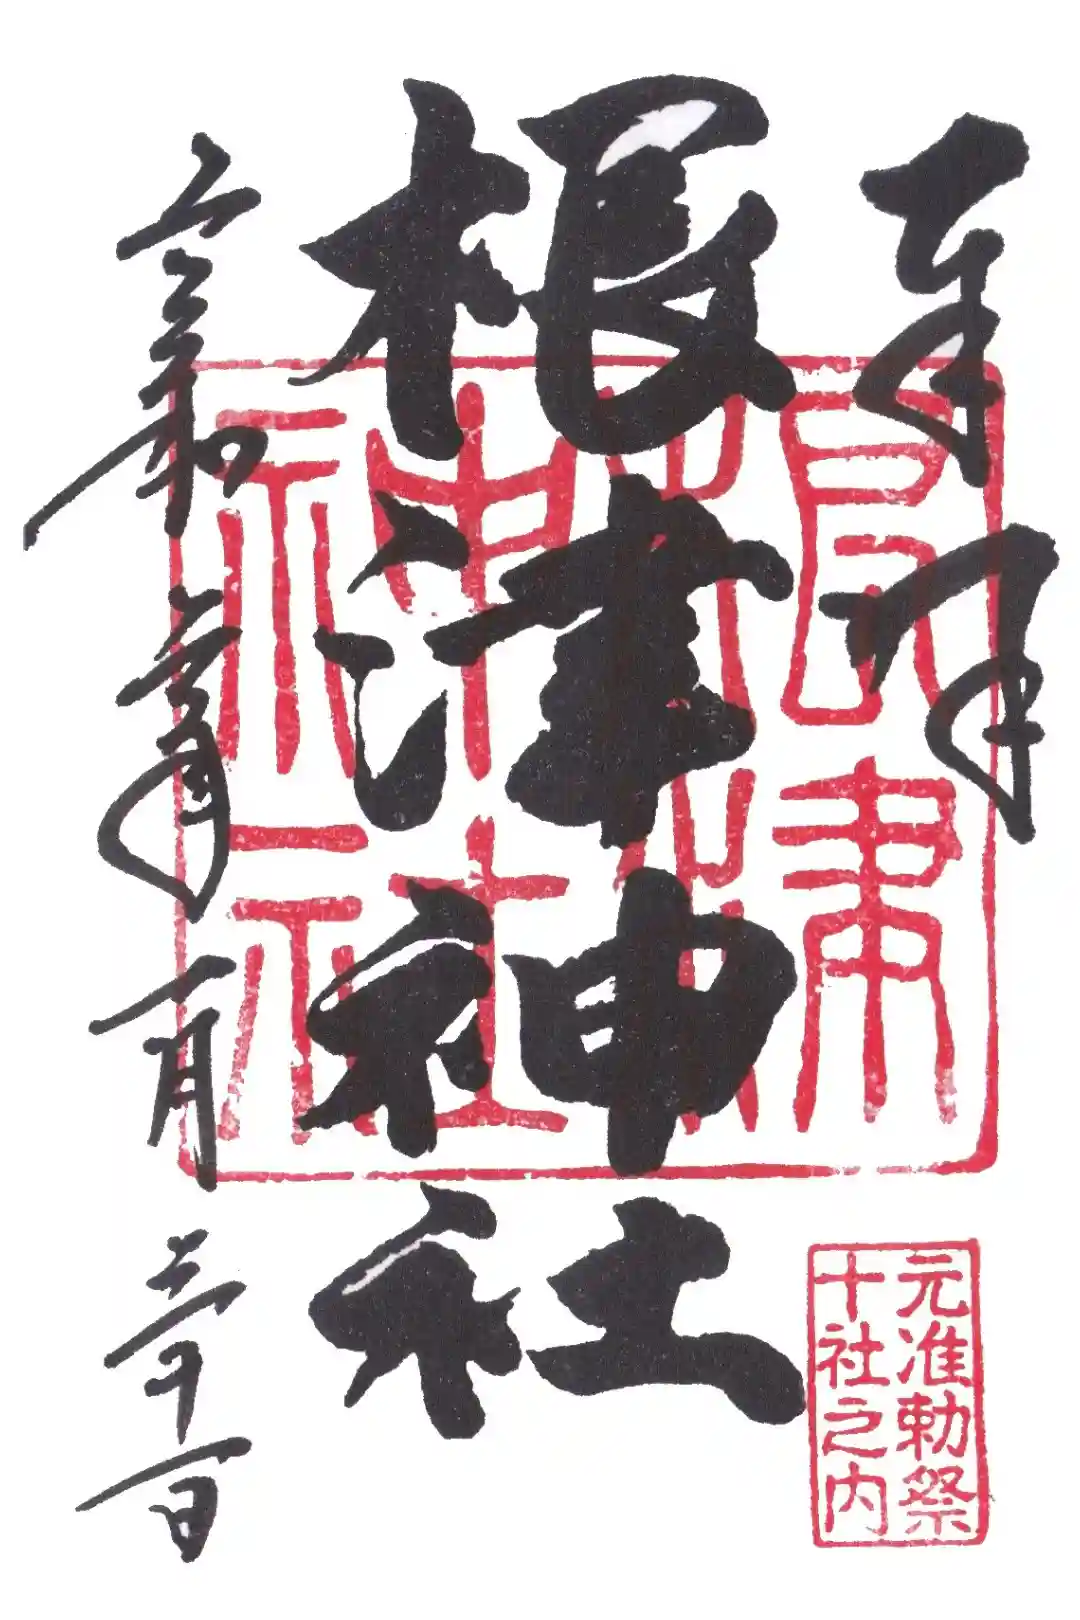 奉拝
根津神社
令和 年一月三十一日
根津
神社
元准勅祭
十社之内